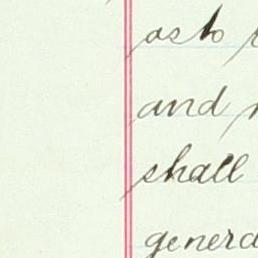 as to
and
shall
genera